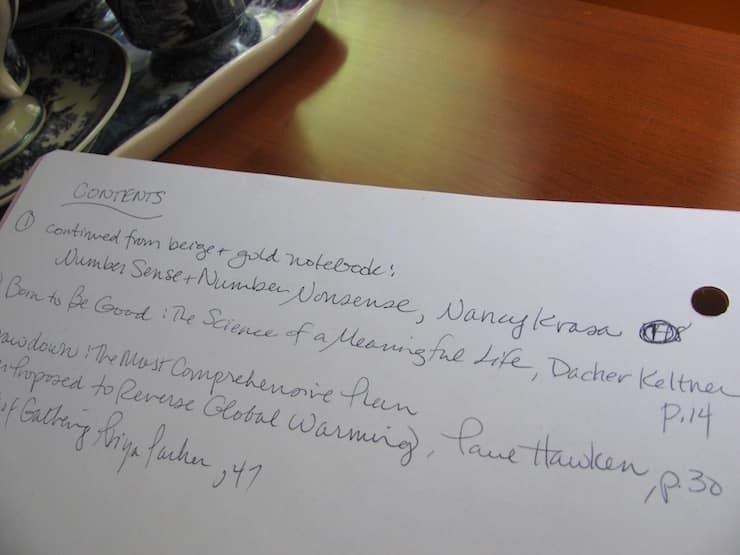 CONTENTS
① continued from beige + gold notebook:
Number Sense + Number Nonsense, Nancy Krasa
Born to Be Good : The Science of a Meaningful Life, Dacher Keltner
p.14
awdown : The Most Comprehensive Plan
er Proposed to Reverse Global Warming, Paul Hawken, p.30
of Gathering Priya Parker, 47